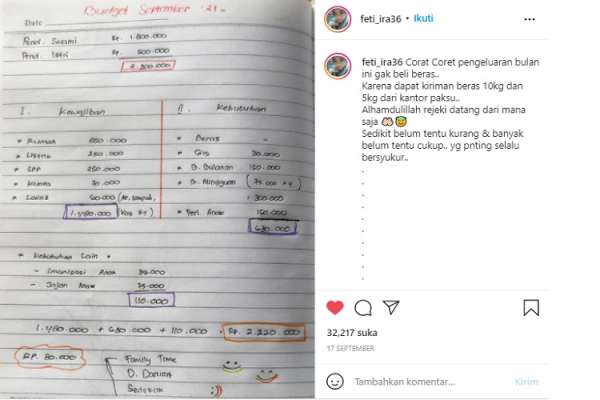 Budget September '21
Date
Pend. Suami Rp. 1.800.000
Pend. Istri Rp. 500.000
2.300.000
I. Kewajiban
SPP 250.000
1.480.000
II. Kebutuhan
Beras -
Gas
B. Bulanan 150.000
B. Mingguan (75.000 x 4)
300.000
Anak 150.000
630.000
Kebutuhan Lain
Anak
Jajan Anak
110.000
1.480.000 + 630.000 + 110.000 = Rp. 2.220.000
Rp. 80.000
Family Time
D. Darurat
Sedekah
feti_ira36 • Ikuti
feti_ira36 Corat Coret pengeluaran bulan
ini gak beli beras..
Karena dapat kiriman beras 10kg dan
5kg dari kantor paksu..
Alhamdulillah rejeki datang dari mana
saja 🤲🏻😇
Sedikit belum tentu kurang & banyak
belum tentu cukup.. yg pnting selalu
bersyukur..
.
.
.
.
.
.
.
.
32,217 suka
17 SEPTEMBER
Tambahkan komentar...
Kirim